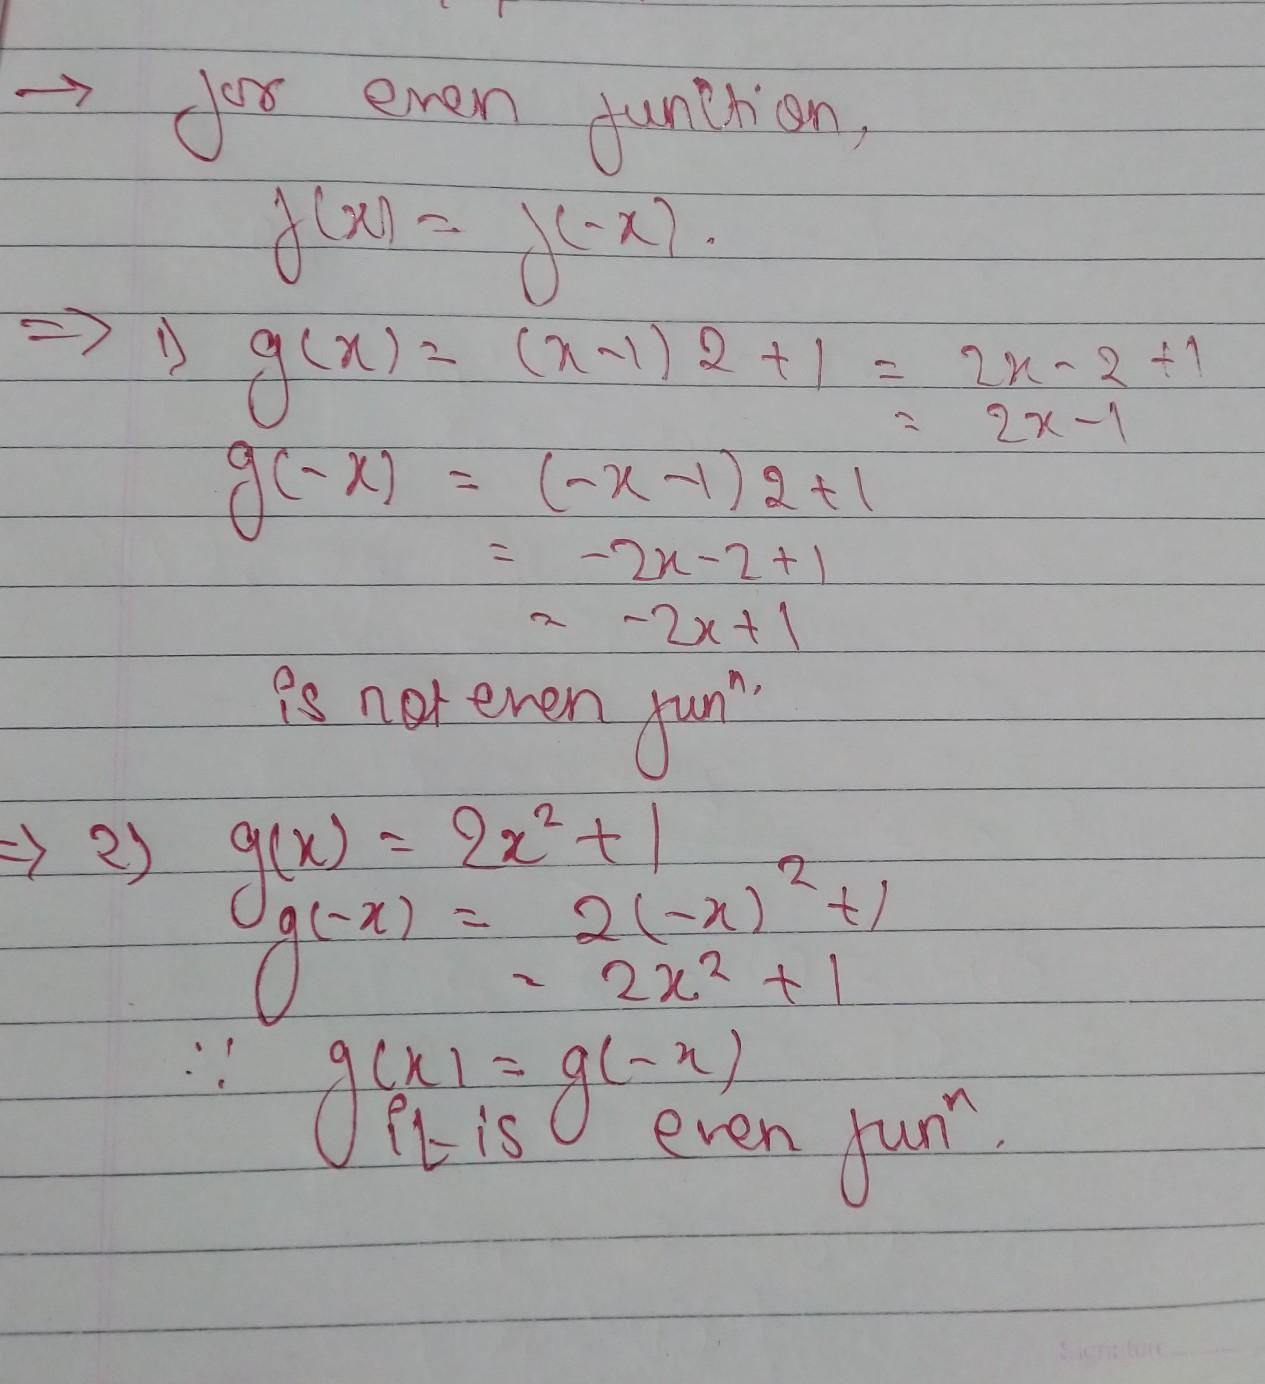 → for even function,
f(x) = f(-x).
=> 1) g(x) = (x-1)2+1 = 2x-2+1
= 2x-1
g(-x) = (-x-1)2+1
= -2x-2+1
= -2x+1
is not even funⁿ.
=> 2) g(x) = 2x²+1
g(-x) = 2(-x)²+1
= 2x²+1
∵ g(x) = g(-x)
it is even funⁿ.
Signature